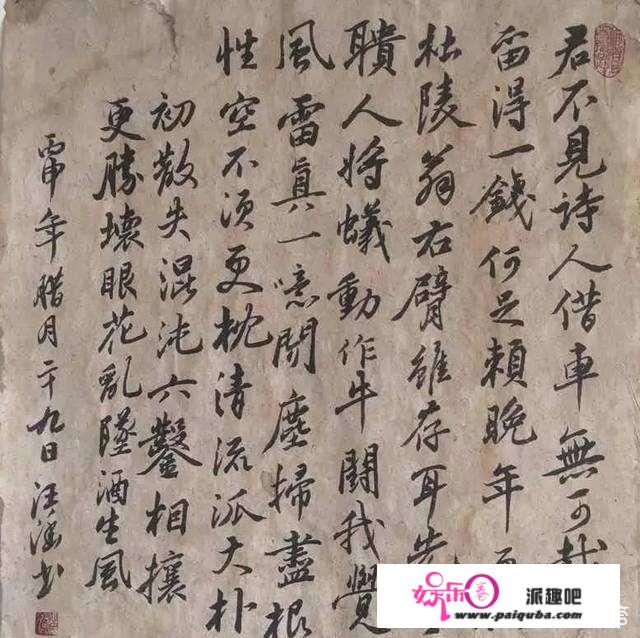 君不見詩人借車無可載
留得一錢何足賴晚年更
杜陵翁右臂雖存耳先
聵人將蟻動作牛鬪我覺
風雷真一噫聞塵掃盡根
性空不須更枕清流派大朴
初散失混沌六鑿相攘
更勝壞眼花亂墜酒生風
丙申年腊月二十九日汪涵书
娱乐卷 派趣吧
www.paiquba.com